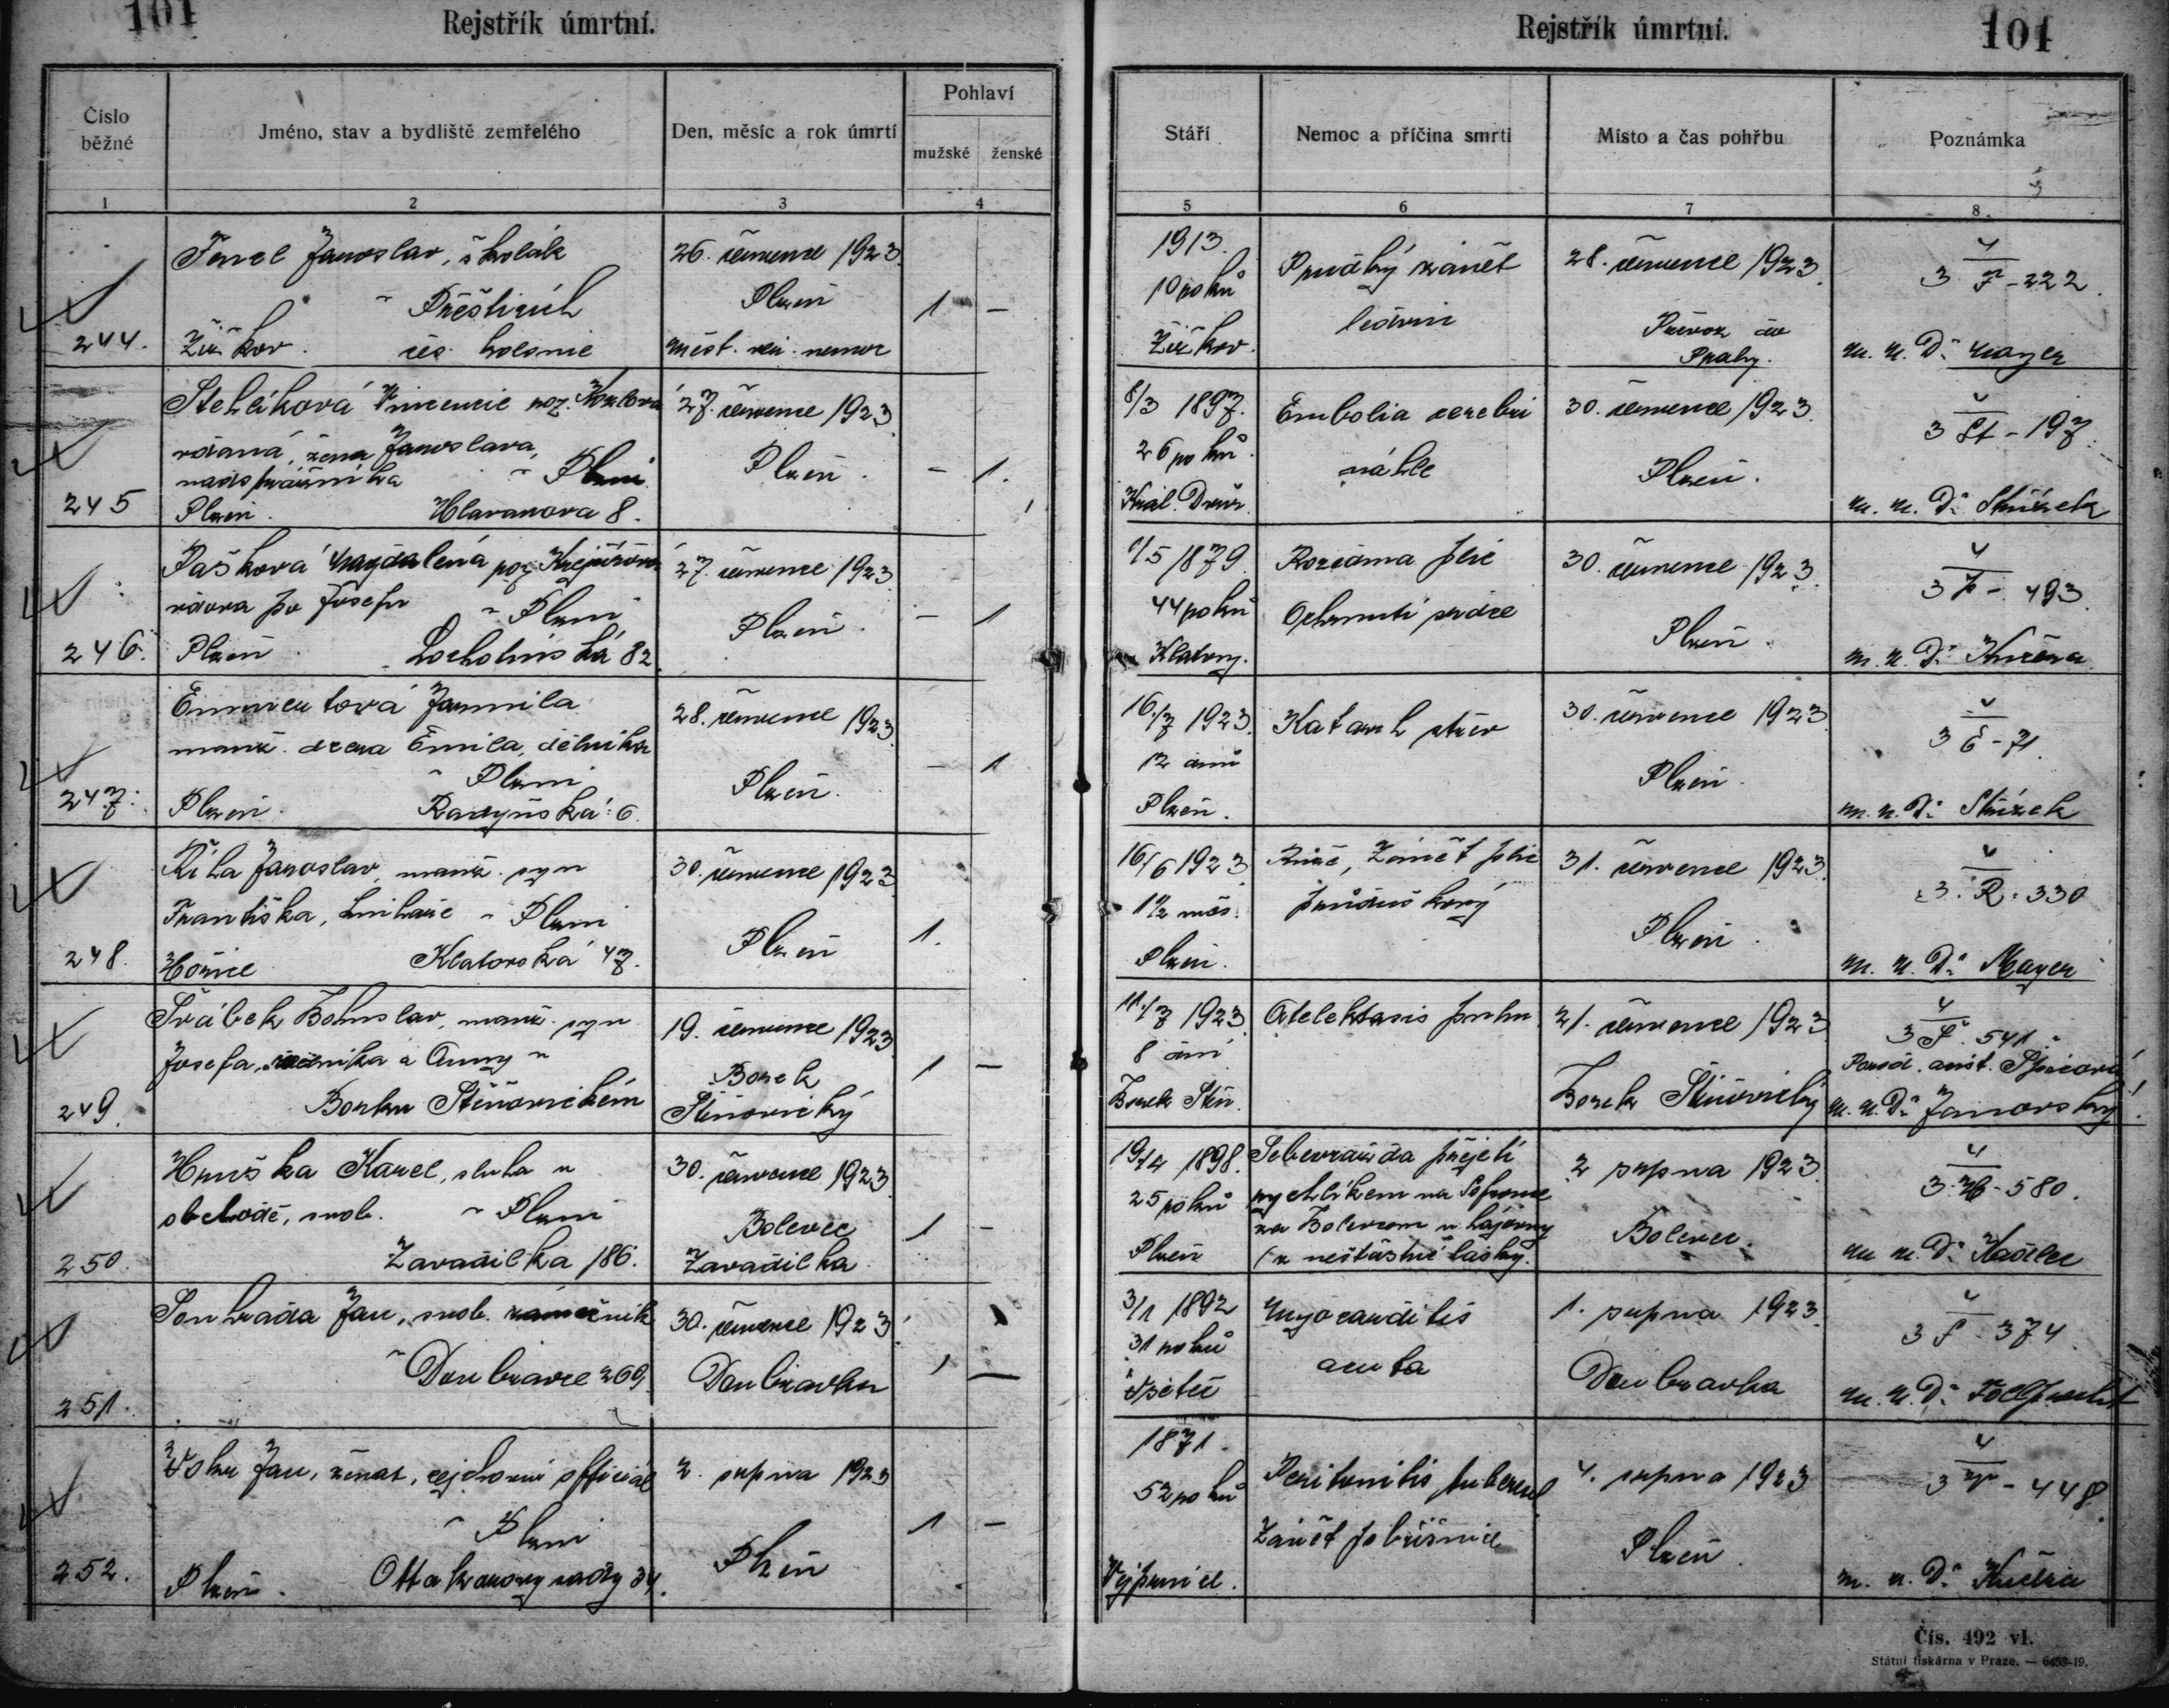 101
Rejstřík úmrtní.
Číslo běžné
Jméno, stav a bydliště zemřelého
Den, měsíc a rok úmrtí
Pohlaví
mužské
ženské
1
2
3
4
Jaroslav, školák
v Přešticích
Žižkov
244.
26. července 1923.
Plzeň
nemoc
1 –
Stehlíková Vincencie roz.
vdaná, žena Jaroslava,
v Plzni
Plzeň. Hlavanova 8.
245
27. července 1923
Plzeň.
– 1.
Pašková Magdalena roz. Krejčířová
vdova po Josefu
v Plzni
Plzeň. Lochotínská 82.
246.
27. července 1923
Plzeň.
– 1
Jarmila
manž. dcera Emila, dělníka
v Plzni
Plzeň. Radyňská 6.
247.
28. července 1923
Plzeň.
– 1
Říha Jaroslav, manž. syn
Františka, knihaře v Plzni
Hořice Klatovská 47.
248.
30. července 1923
Plzeň
1.
Švábek Bohuslav, manž. syn
Josefa, a Anny v
Borku Štěnovickém
249.
19. července 1923
Borek
Štěnovický
1 –
Hruška Karel, sluha v
obchodě, svob. v Plzni
Zavadilka 186.
250.
30. července 1923
Bolevec
Zavadilka
1 –
Souhrada Jan, svob. zámečník
v Doubravce 269.
251.
30. července 1923
Doubravka
1 –
Jan, ženat, official
v Plzni
Plzeň. Ottakarovy sady 34.
252.
2. srpna 1923
Plzeň
1 –
Rejstřík úmrtní.
101
Stáří
Nemoc a příčina smrti
Místo a čas pohřbu
Poznámka
5
6
7
8.
1913.
10 roků
Žižkov.
Prudký zánět
ledvin
28. července 1923.
Převoz do
Prahy.
3 - 222.
m. u. Dr Mayer
8/3 1897.
26 roků.
Král. Dvůr.
Embolia cerebri
náhle
30. července 1923.
Plzeň.
3 St - 197.
m. u. Dr Střízek
1/5 1879
44 roků
Klatovy.
Rozedma plic
Ochrnutí srdce
30. července 1923.
Plzeň.
3 P - 493
m. u. Dr Kučera
16./7 1923.
12 dnů
Plzeň.
Katarrh střev
30. července 1923
Plzeň.
3 E - 71
m. u. Dr Střízek
16/6 1923
1 1/2 měs.
Plzeň.
Zánět plic
průduškový
31. července 1923.
Plzeň.
3. R. 330
m. u. Dr Mayer
11./7 1923
8 dní
Borek Štěn.
Atelektasis
21. července 1923
Borek Štěnovický
3 Š. 541
m. u. Dr Janovský.
1898.
25 roků
Plzeň
Sebevražda přejetí
rychlíkem na
za Bolevcem u hájovny
(z nešťastné lásky.
2 srpna 1923
Bolevec.
3. H - 580.
m. u. Dr Kadlec
3/1 1892
31 roků
Myocarditis
acuta
1. srpna 1923.
Doubravka
3 S - 374
m. u. Dr
1871.
52 roků
Peritonitis tubercul.
Zánět pobřišnice
4. srpna 1923
Plzeň.
3 - 448.
m. u. Dr Kučera
Čís. 492 vl.
Státní tiskárna v Praze. — 6453-19.